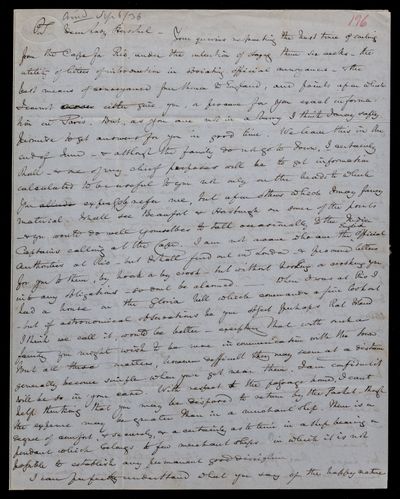 Ansd Sept 6/36
196
Dear Lady Herschel – Your queries respecting the best time of sailing
from the Cape for Rio, under the intention of staying there six weeks – the
utility of letters of introduction in avoiding official annoyances – & the
best means of conveyance from thence to England, are points upon which
I cannot give you, a person for you exact informa
tion in Town. But, as you are not in a hurry I think I may safely
promise to get answers for you in good time. We leave this in the
end of June – & although the family do not go to Town, I certainly
shall – & one of my chief purposes will be to get information
calculated to be useful to you not only on the heads to which
you expressly refer me, but upon others which I may fancy
material. I shall see Beaufort & on some of the points
& you would do well yourselves to talk occasionally to the Indian
Captains calling at the Cape. I am not aware who are the English official
authorities at Rio – but I shall find out in London – & procure letters
for you to them, by hook or by crook – but without hooking or crooking you
into any obligations – so don't be alarmed. – When I was at Rio I
had a house on the Gloria Hill which commands a fine look out
– but if astronomical observations be your object perhaps Rat Island
I think we call it, would be better – especially that with such a
family you might wish to be more in communication with the town
But all these matters, however difficult they may seem at a distance
generally become simple when you get near them. I am confident it
will be so in your case. With respect to the passage home, I can't
help thinking that you may be disposed to return by the Packet though
the expense may be greater than in a merchant ship. There is a
degree of comfort, & security, & a certainty as to time in a ship bearing a
pendant which belongs to few merchant ships – in which it is not
possible to establish any permanent good discipline.
I can perfectly understand what you say of the happy nature